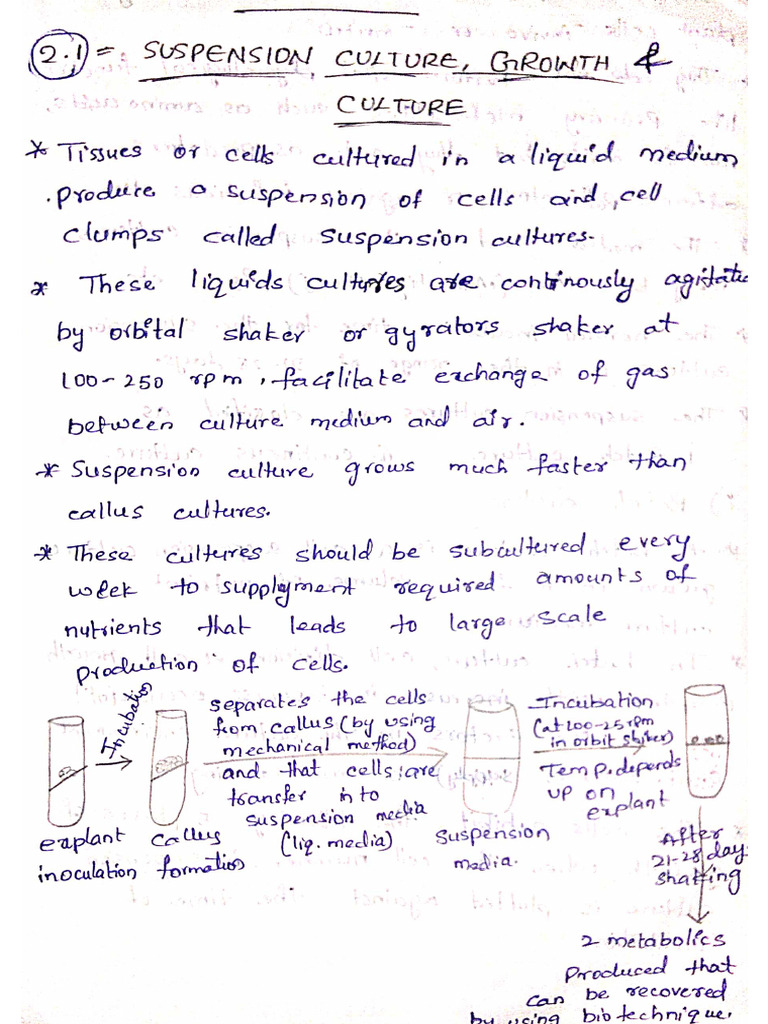 2.1 = SUSPENSION CULTURE, GROWTH &
CULTURE
* Tissues or cells cultured in a liquid medium
produce a suspension of cells and cell
clumps called suspension cultures.
* These liquids cultures are continously agitate
by orbital shaker or gyrators shaker at
100-250 rpm, facilitate exchange of gas
between culture medium and air.
* Suspension culture grows much faster than
callus cultures.
* These cultures should be subcultured every
week to supplyment required amounts of
nutrients that leads to large scale
production of cells.
Incubation
separates the cells
from callus (by using
mechanical method)
and that cells are
transfer in to
suspension media
(liq. media)
Incubation
(at 100-25 rpm
in orbit shaker)
Temp. depends
up on
explant
explant
inoculation
callus
formation
suspension
media.
After
21-28 day
shaking
2 metabolics
produced that
can be recovered
by using biotechnique.